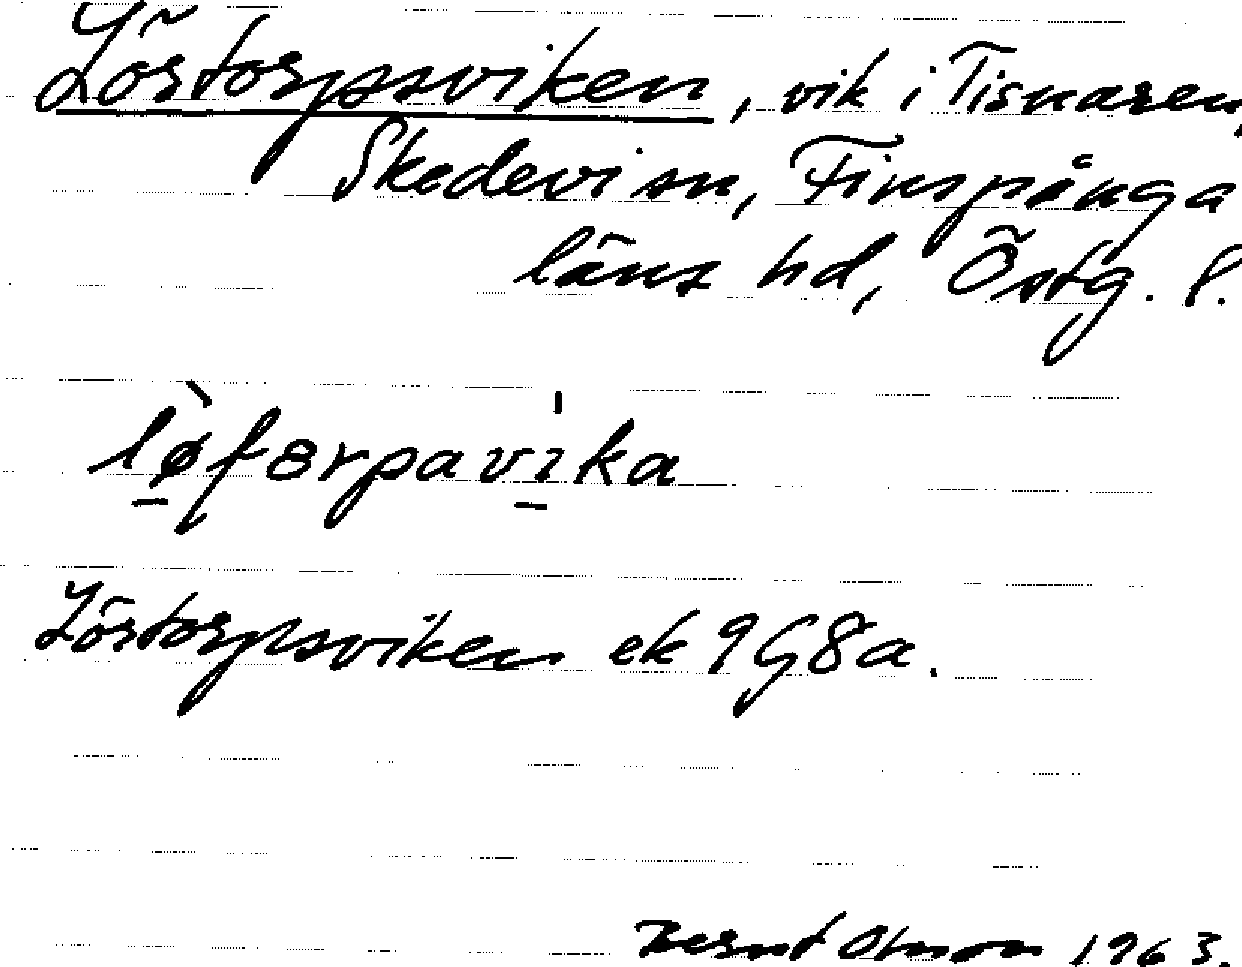 Lörtorpsviken, vik i Tisnaren,
Skedevi sn, Finspånga
läns hd, Östg. l.
lø̱̀fɵrpavi̱ka
Lörtorpsviken ek 9G8a.
Bernt Olsson 1963.